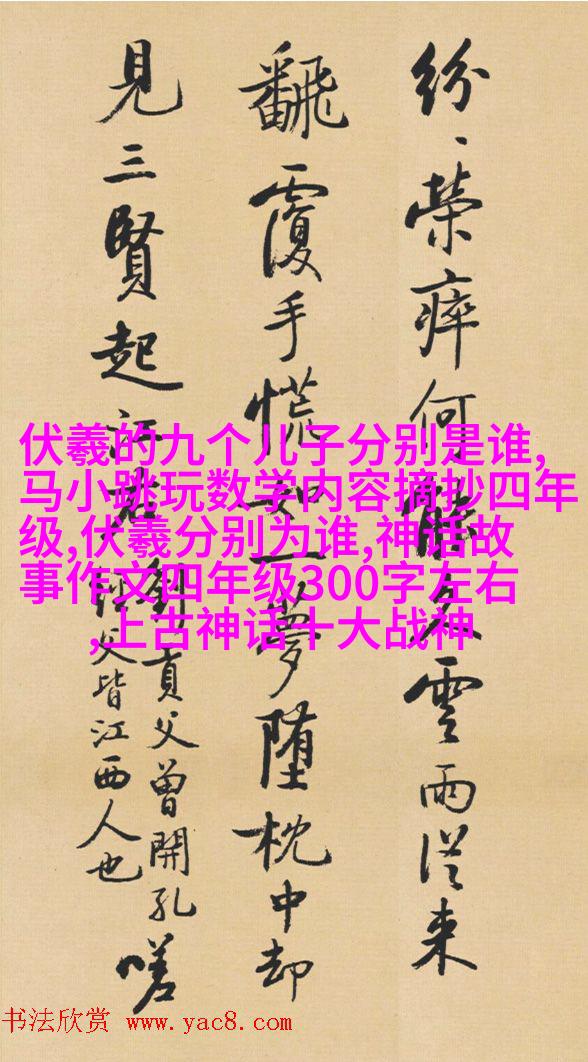 纷、荣瘁何能久云雨从来
翻覆手慌如一梦堕枕中却
見三賢起江
劉貢父曾開孔
父皆江西人也
嗟
伏羲的九个儿子分别是谁,
马小跳玩数学内容摘抄四年
级,伏羲分别为谁,神话故
事作文四年级300字左右
,上古神话十大战神
书法欣赏 www.yac8.com